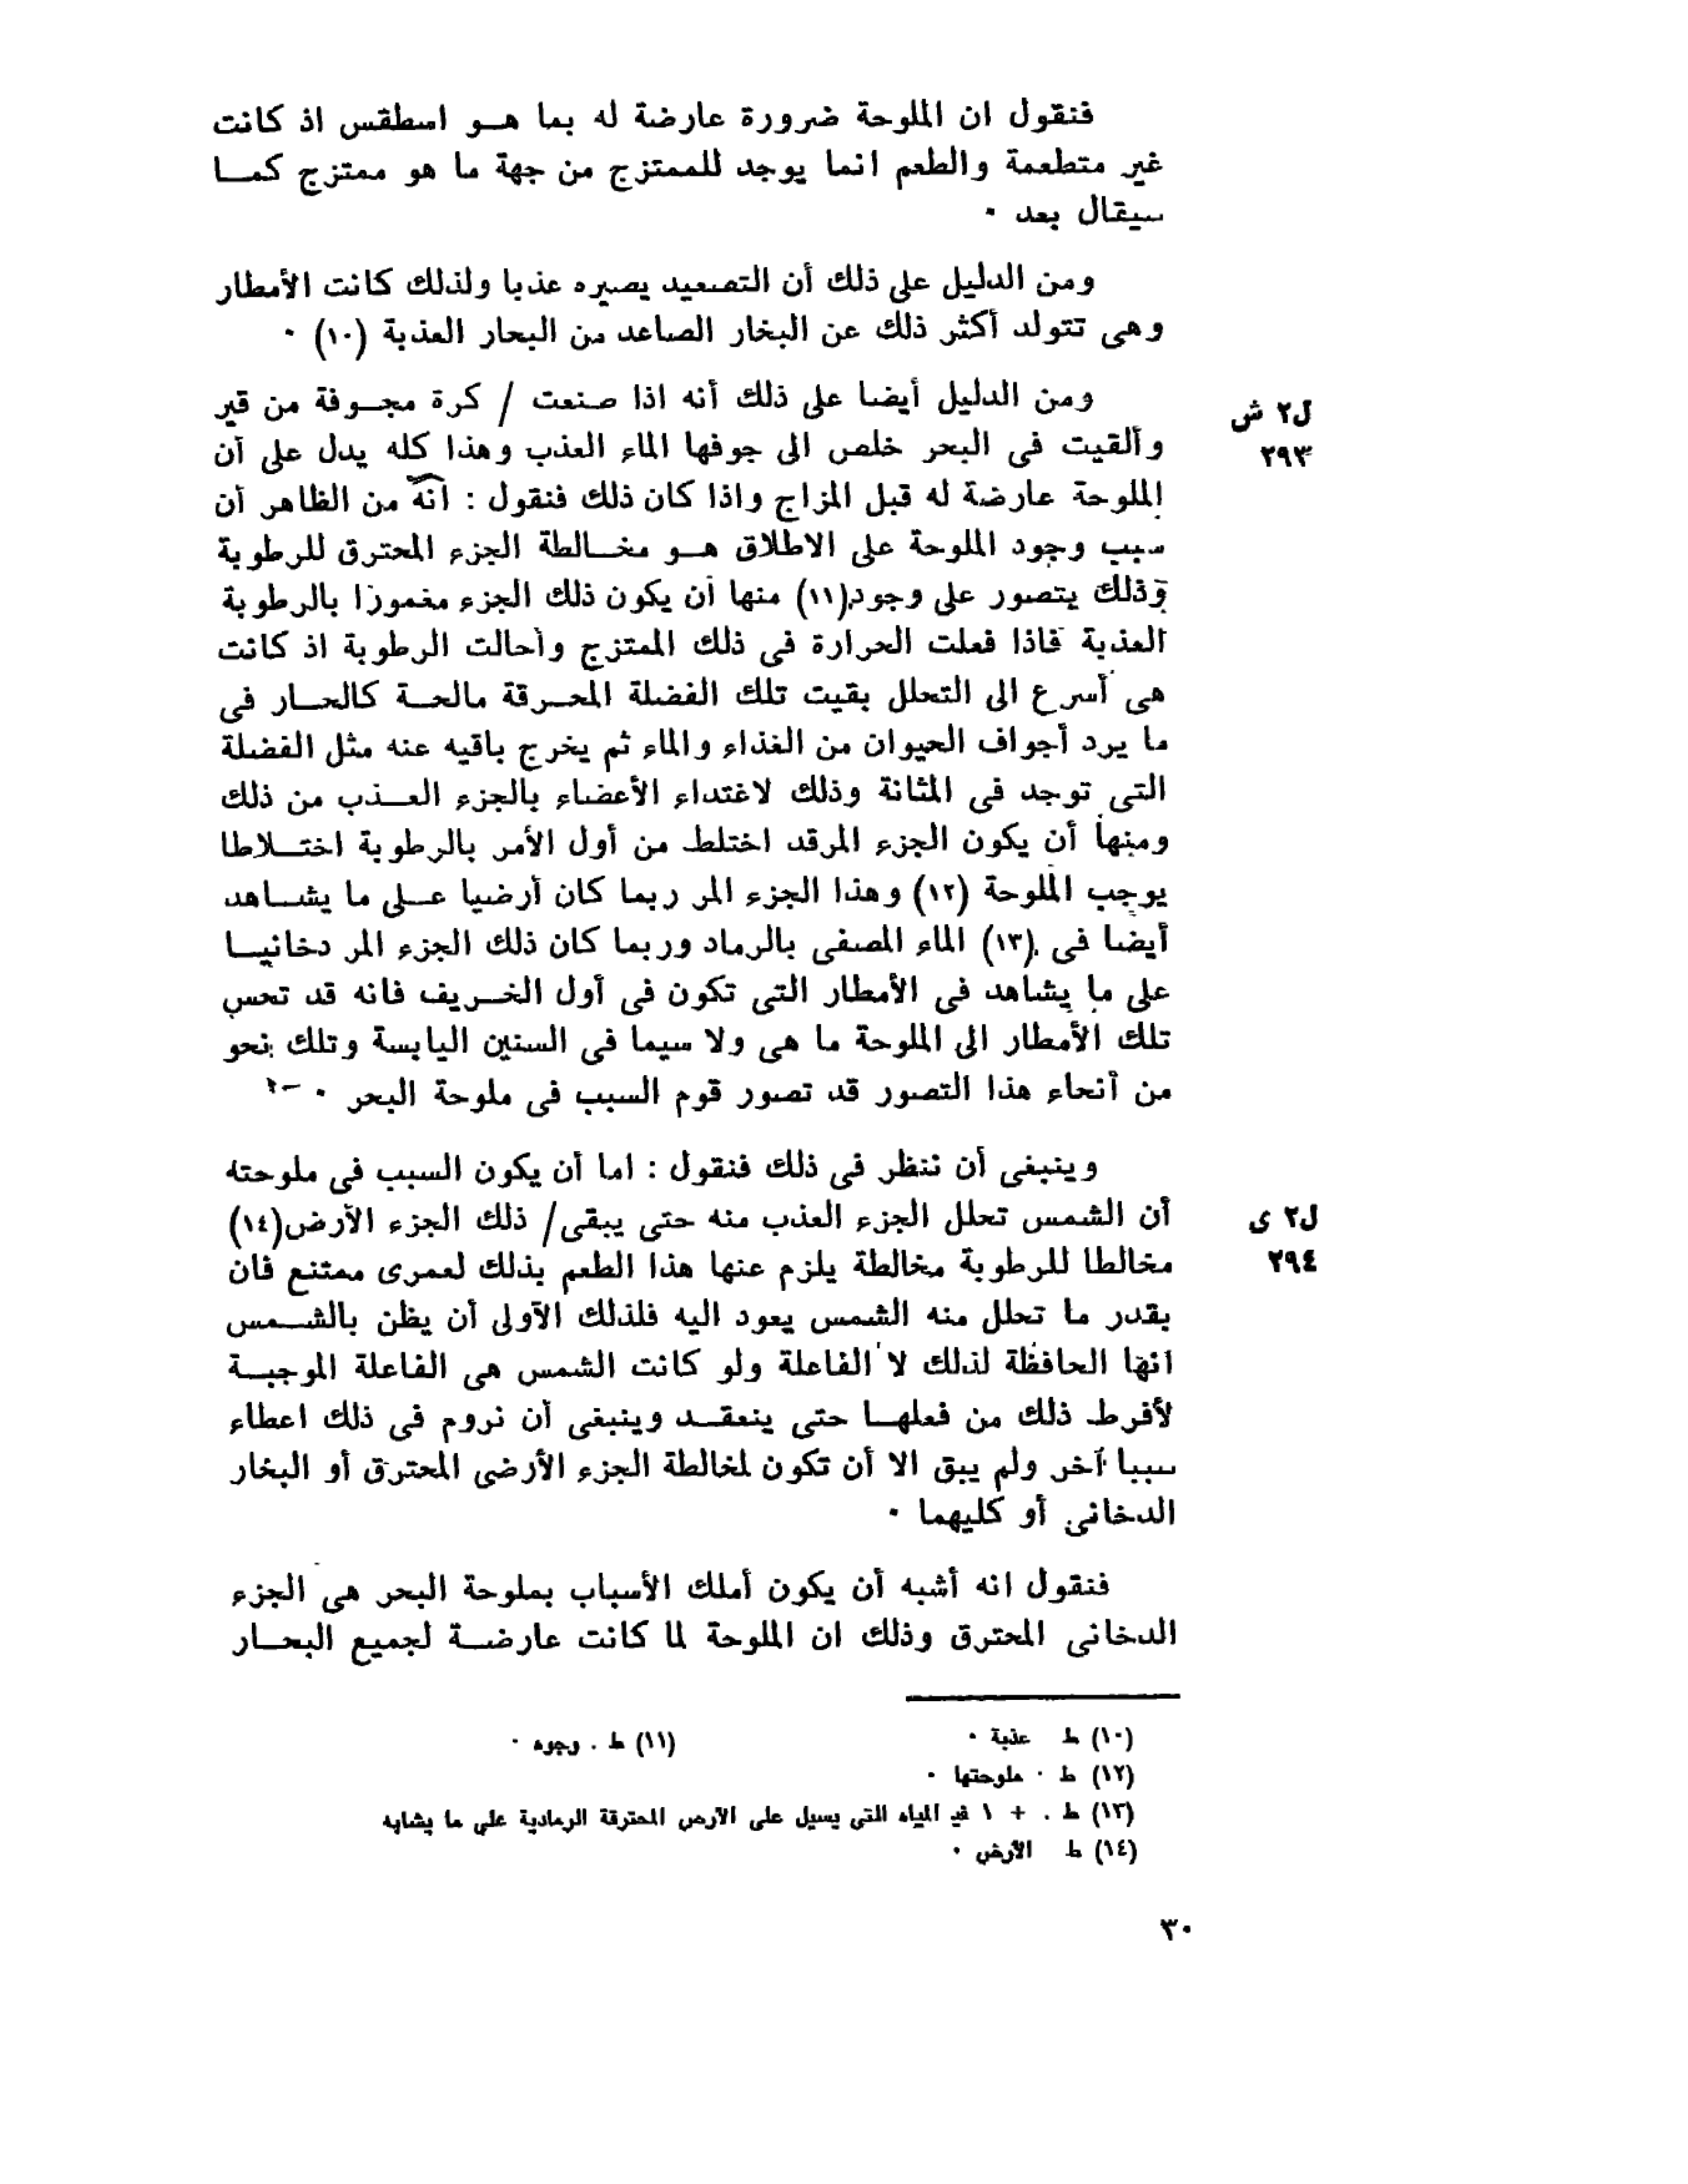 فنقول ان الملوحة ضرورة عارضة له بما هو اسطقس اذ كانت
غير متطعمة والطعم انما يوجد للممتزج من جهة ما هو ممتزج كما
سيقال بعد ٠
ومن الدليل على ذلك أن التصعيد يصيره عذبا ولذلك كانت الأمطار
وهى تتولد أكثر ذلك عن البخار الصاعد من البحار العذبة (١٠) ٠
ومن الدليل أيضا على ذلك أنه اذا صنعت / كرة مجوفة من قير
ل٢ ش
وألقيت فى البحر خلص الى جوفها الماء العذب وهذا كله يدل على أن
٢٩٣
الملوحة عارضة له قبل المزاج واذا كان ذلك فنقول : انه من الظاهر أن
سبب وجود الملوحة على الاطلاق هو مخالطة الجزء المحترق للرطوبة
وذلك يتصور على وجود(١١) منها أن يكون ذلك الجزء مغمورا بالرطوبة
العذبة فاذا فعلت الحرارة فى ذلك الممتزج وأحالت الرطوبة اذ كانت
هى أسرع الى التحلل بقيت تلك الفضلة المحرقة مالحة كالحار فى
ما يرد أجواف الحيوان من الغذاء والماء ثم يخرج باقيه عنه مثل الفضلة
التى توجد فى المثانة وذلك لاغتداء الأعضاء بالجزء العذب من ذلك
ومنها أن يكون الجزء المرقد اختلط من أول الأمر بالرطوبة اختلاطا
يوجب الملوحة (١٢) وهذا الجزء المر ربما كان أرضيا على ما يشاهد
أيضا فى (١٣) الماء المصفى بالرماد وربما كان ذلك الجزء المر دخانيا
على ما يشاهد فى الأمطار التى تكون فى أول الخريف فانه قد تحس
تلك الأمطار الى الملوحة ما هى ولا سيما فى السنين اليابسة وتلك نحو
من أنحاء هذا التصور قد تصور قوم السبب فى ملوحة البحر ٠
وينبغى أن ننظر فى ذلك فنقول : اما أن يكون السبب فى ملوحته
أن الشمس تحلل الجزء العذب منه حتى يبقى/ ذلك الجزء الأرض(١٤)
ل٢ ى
مخالطا للرطوبة مخالطة يلزم عنها هذا الطعم بذلك لعمرى ممتنع فان
٢٩٤
بقدر ما تحلل منه الشمس يعود اليه فلذلك الأولى أن يظن بالشمس
انها الحافظة لذلك لا الفاعلة ولو كانت الشمس هى الفاعلة الموجبة
لأفرط ذلك من فعلها حتى ينعقد وينبغى أن نروم فى ذلك اعطاء
سببا آخر ولم يبق الا أن تكون لمخالطة الجزء الأرضى المحترق أو البخار
الدخانى أو كليهما ٠
فنقول انه أشبه أن يكون أملك الأسباب بملوحة البحر هى الجزء
الدخانى المحترق وذلك ان الملوحة لما كانت عارضة لجميع البحار
(١٠) ط عذبة ٠ (١١) ط . وجوه ٠
(١٢) ط ٠ ملوحتها ٠
(١٣) ط . + ١ في المياه التى يسيل على الأرض المحترقة الرمادية على ما يشابه
(١٤) ط الأرض ٠
٣٠